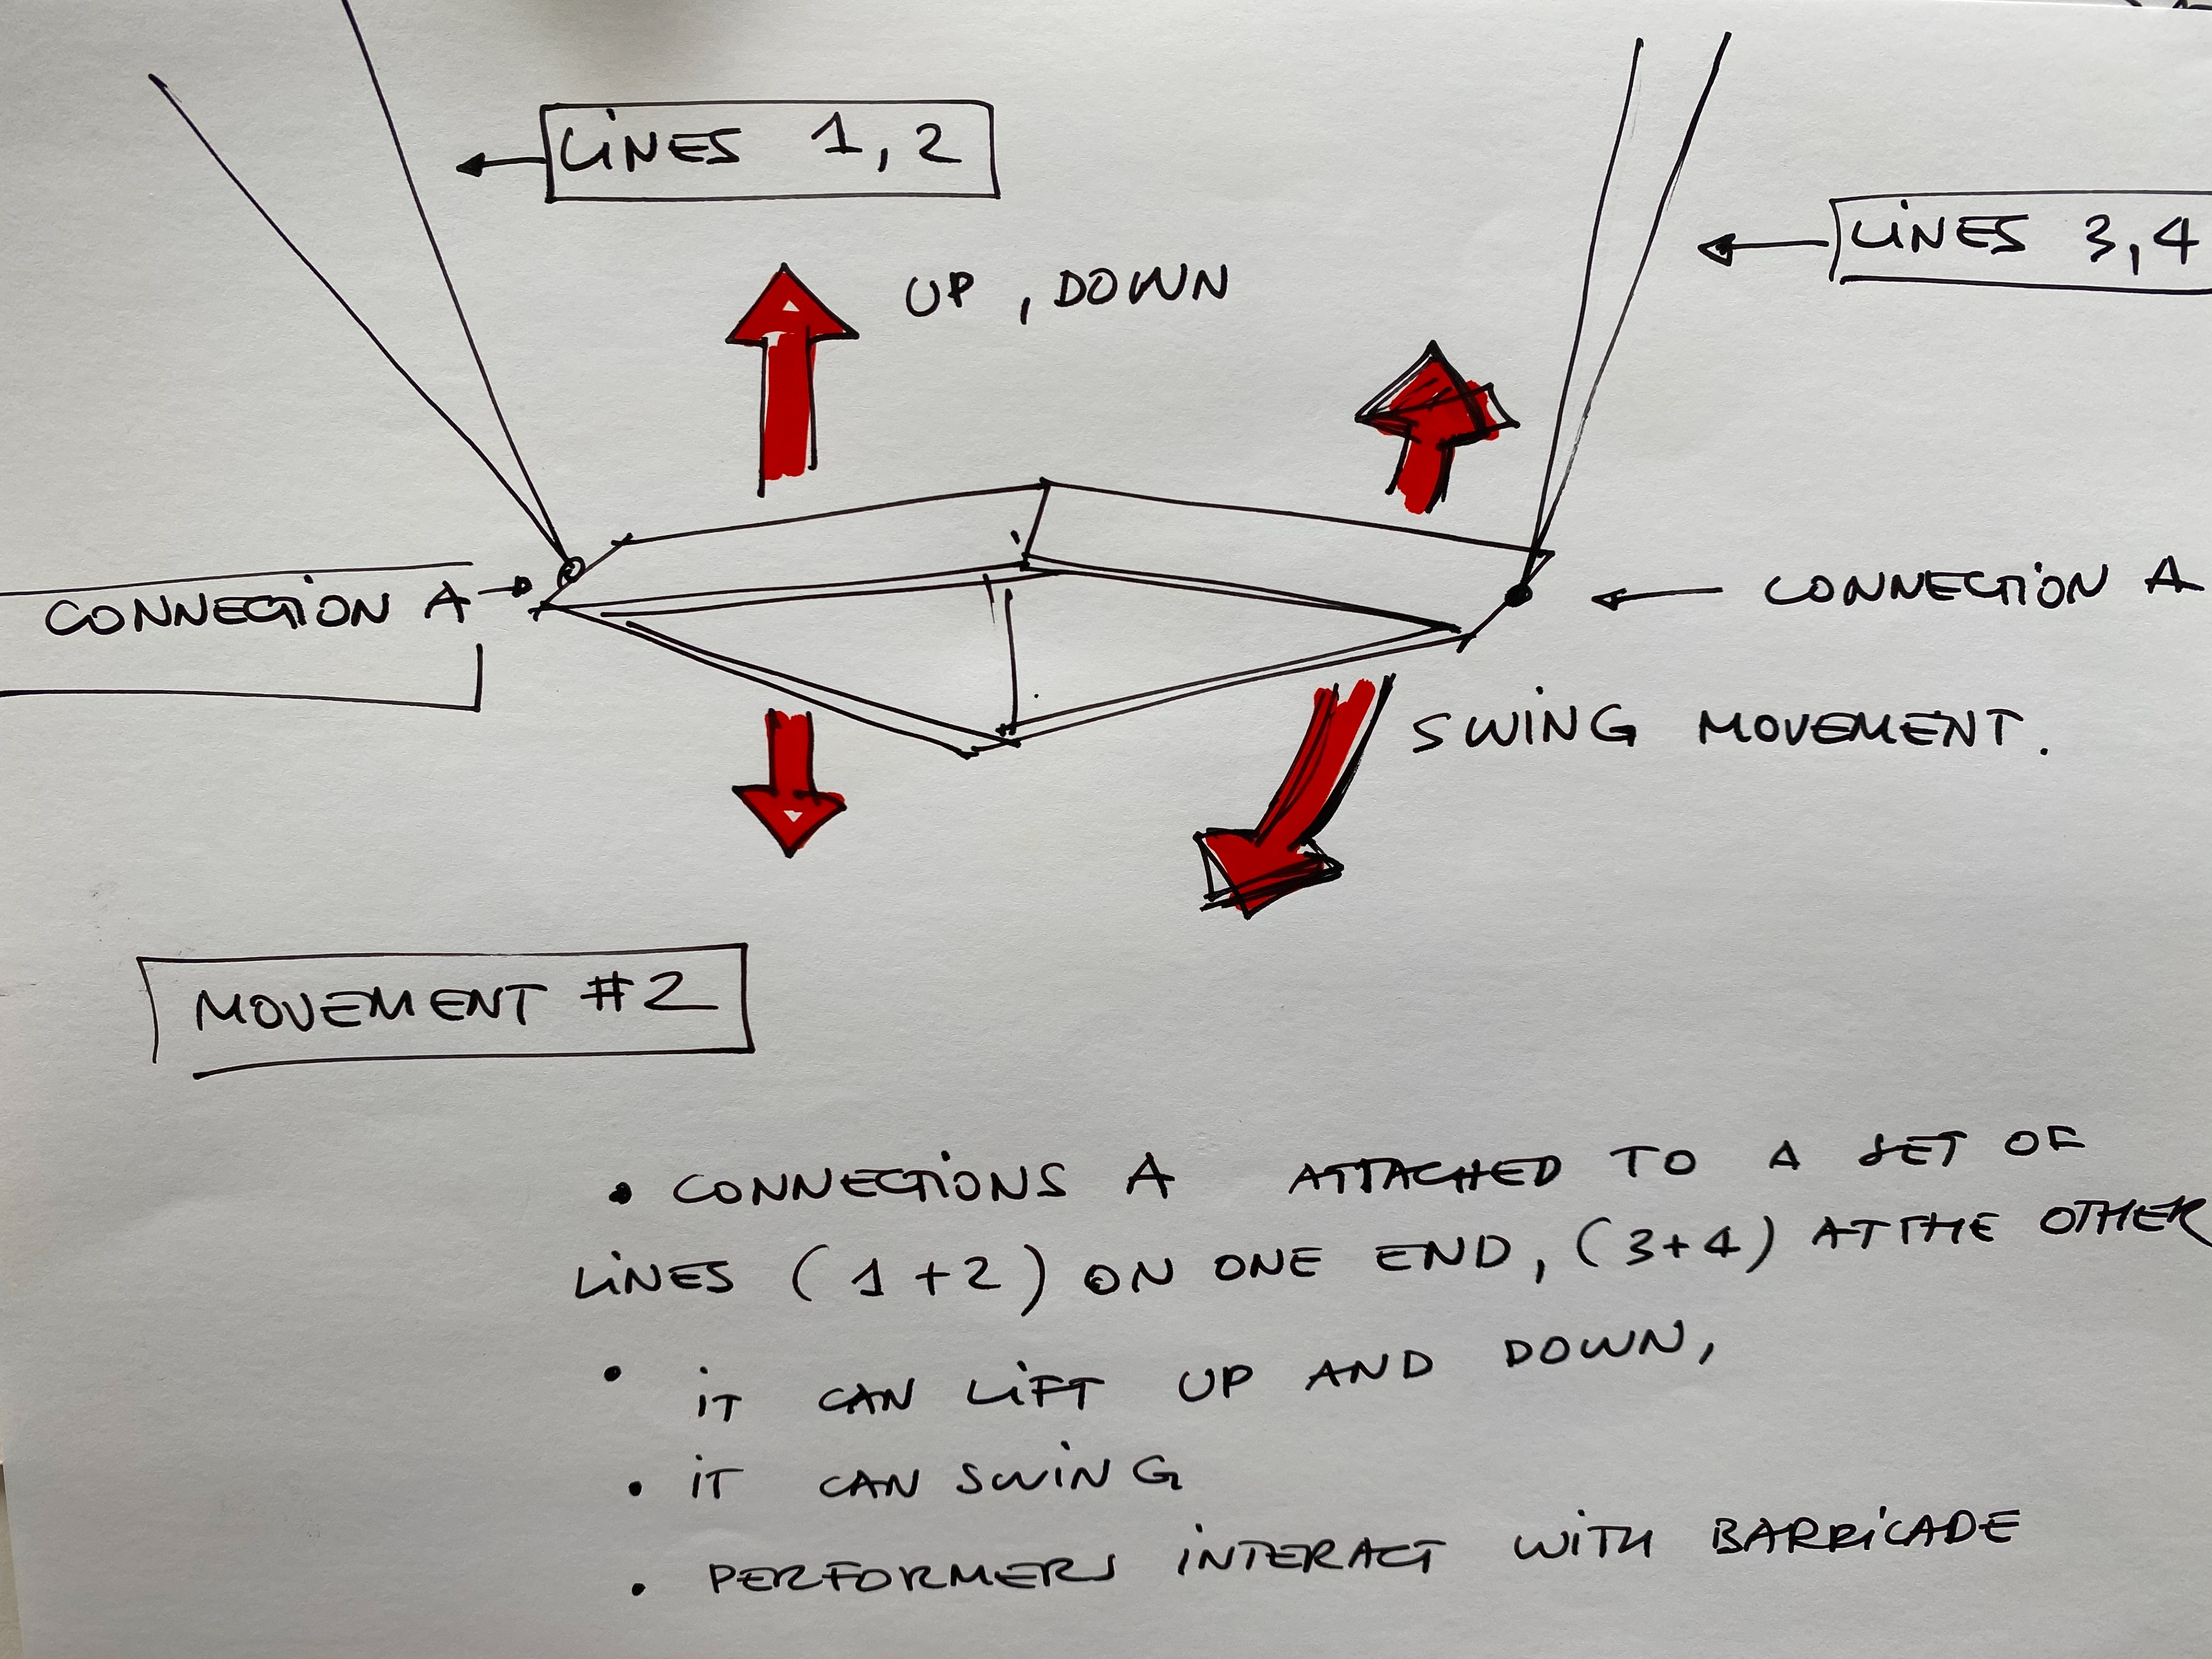 LINES 1, 2
LINES 3, 4
UP, DOWN
CONNECTION A
CONNECTION A
SWING MOVEMENT.
MOVEMENT #2
• CONNECTIONS A ATTACHED TO A SET OF
LINES (1+2) ON ONE END, (3+4) AT THE OTHER
• IT CAN LIFT UP AND DOWN,
• IT CAN SWING
• PERFORMERS INTERACT WITH BARRICADE